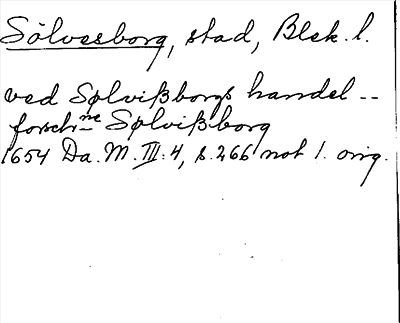 Sölvesborg, stad, Blek. l.
ved Sølvißborgs handel --
forschne Sølvißborg
1654 Da. M. III: 4, s. 266 not 1. orig.